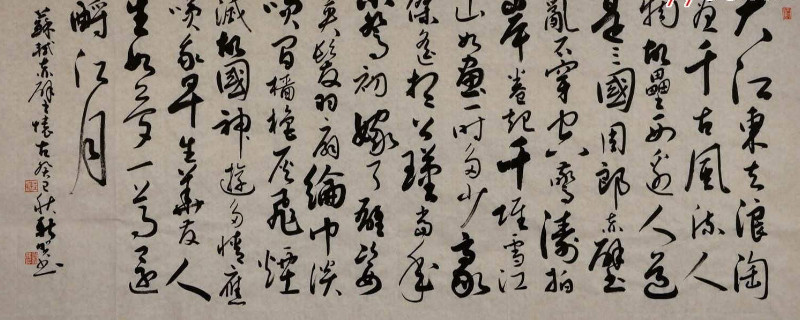 大江東去浪淘
盡千古風流人
物故壘西邊人道
是三國周郎赤壁
亂石穿空驚濤拍
岸卷起千堆雪江
山如畫一時多少豪
傑遙想公瑾當年
小喬初嫁了雄姿
英發羽扇綸巾談
笑間檣櫓灰飛煙
滅故國神遊多情應
笑我早生華发人
生如夢一尊還
酹江月
蘇軾赤壁懷古癸巳秋